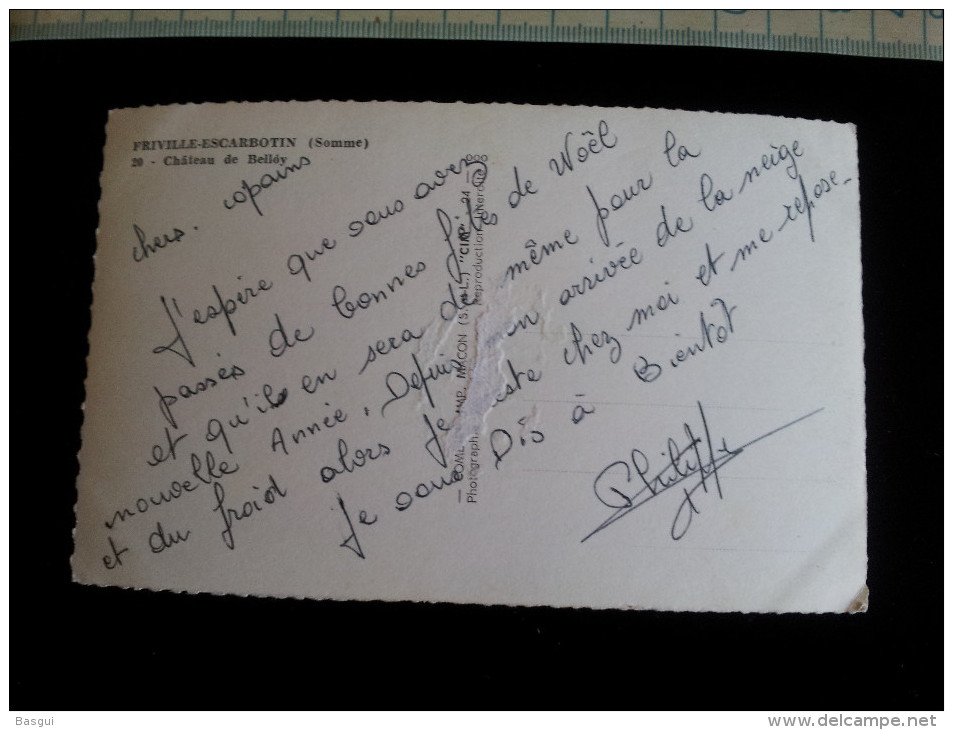 FRIVILLE-ESCARBOTIN (Somme)
20 - Château de Bellôy
chers. copains
J'espère que vous avez
passés de bonnes fêtes de Noël
et qu'ils en sera de même pour la
nouvelle Année. Depuis mon arrivée de la neige
et du froid alors je reste chez moi et me repose.
Je vous Dis à Bientôt
Philippe
IMP. MACON (S.-&-L.) "CIM"
Photographie
Reproduction interdite
Basgui
www.delcampe.net